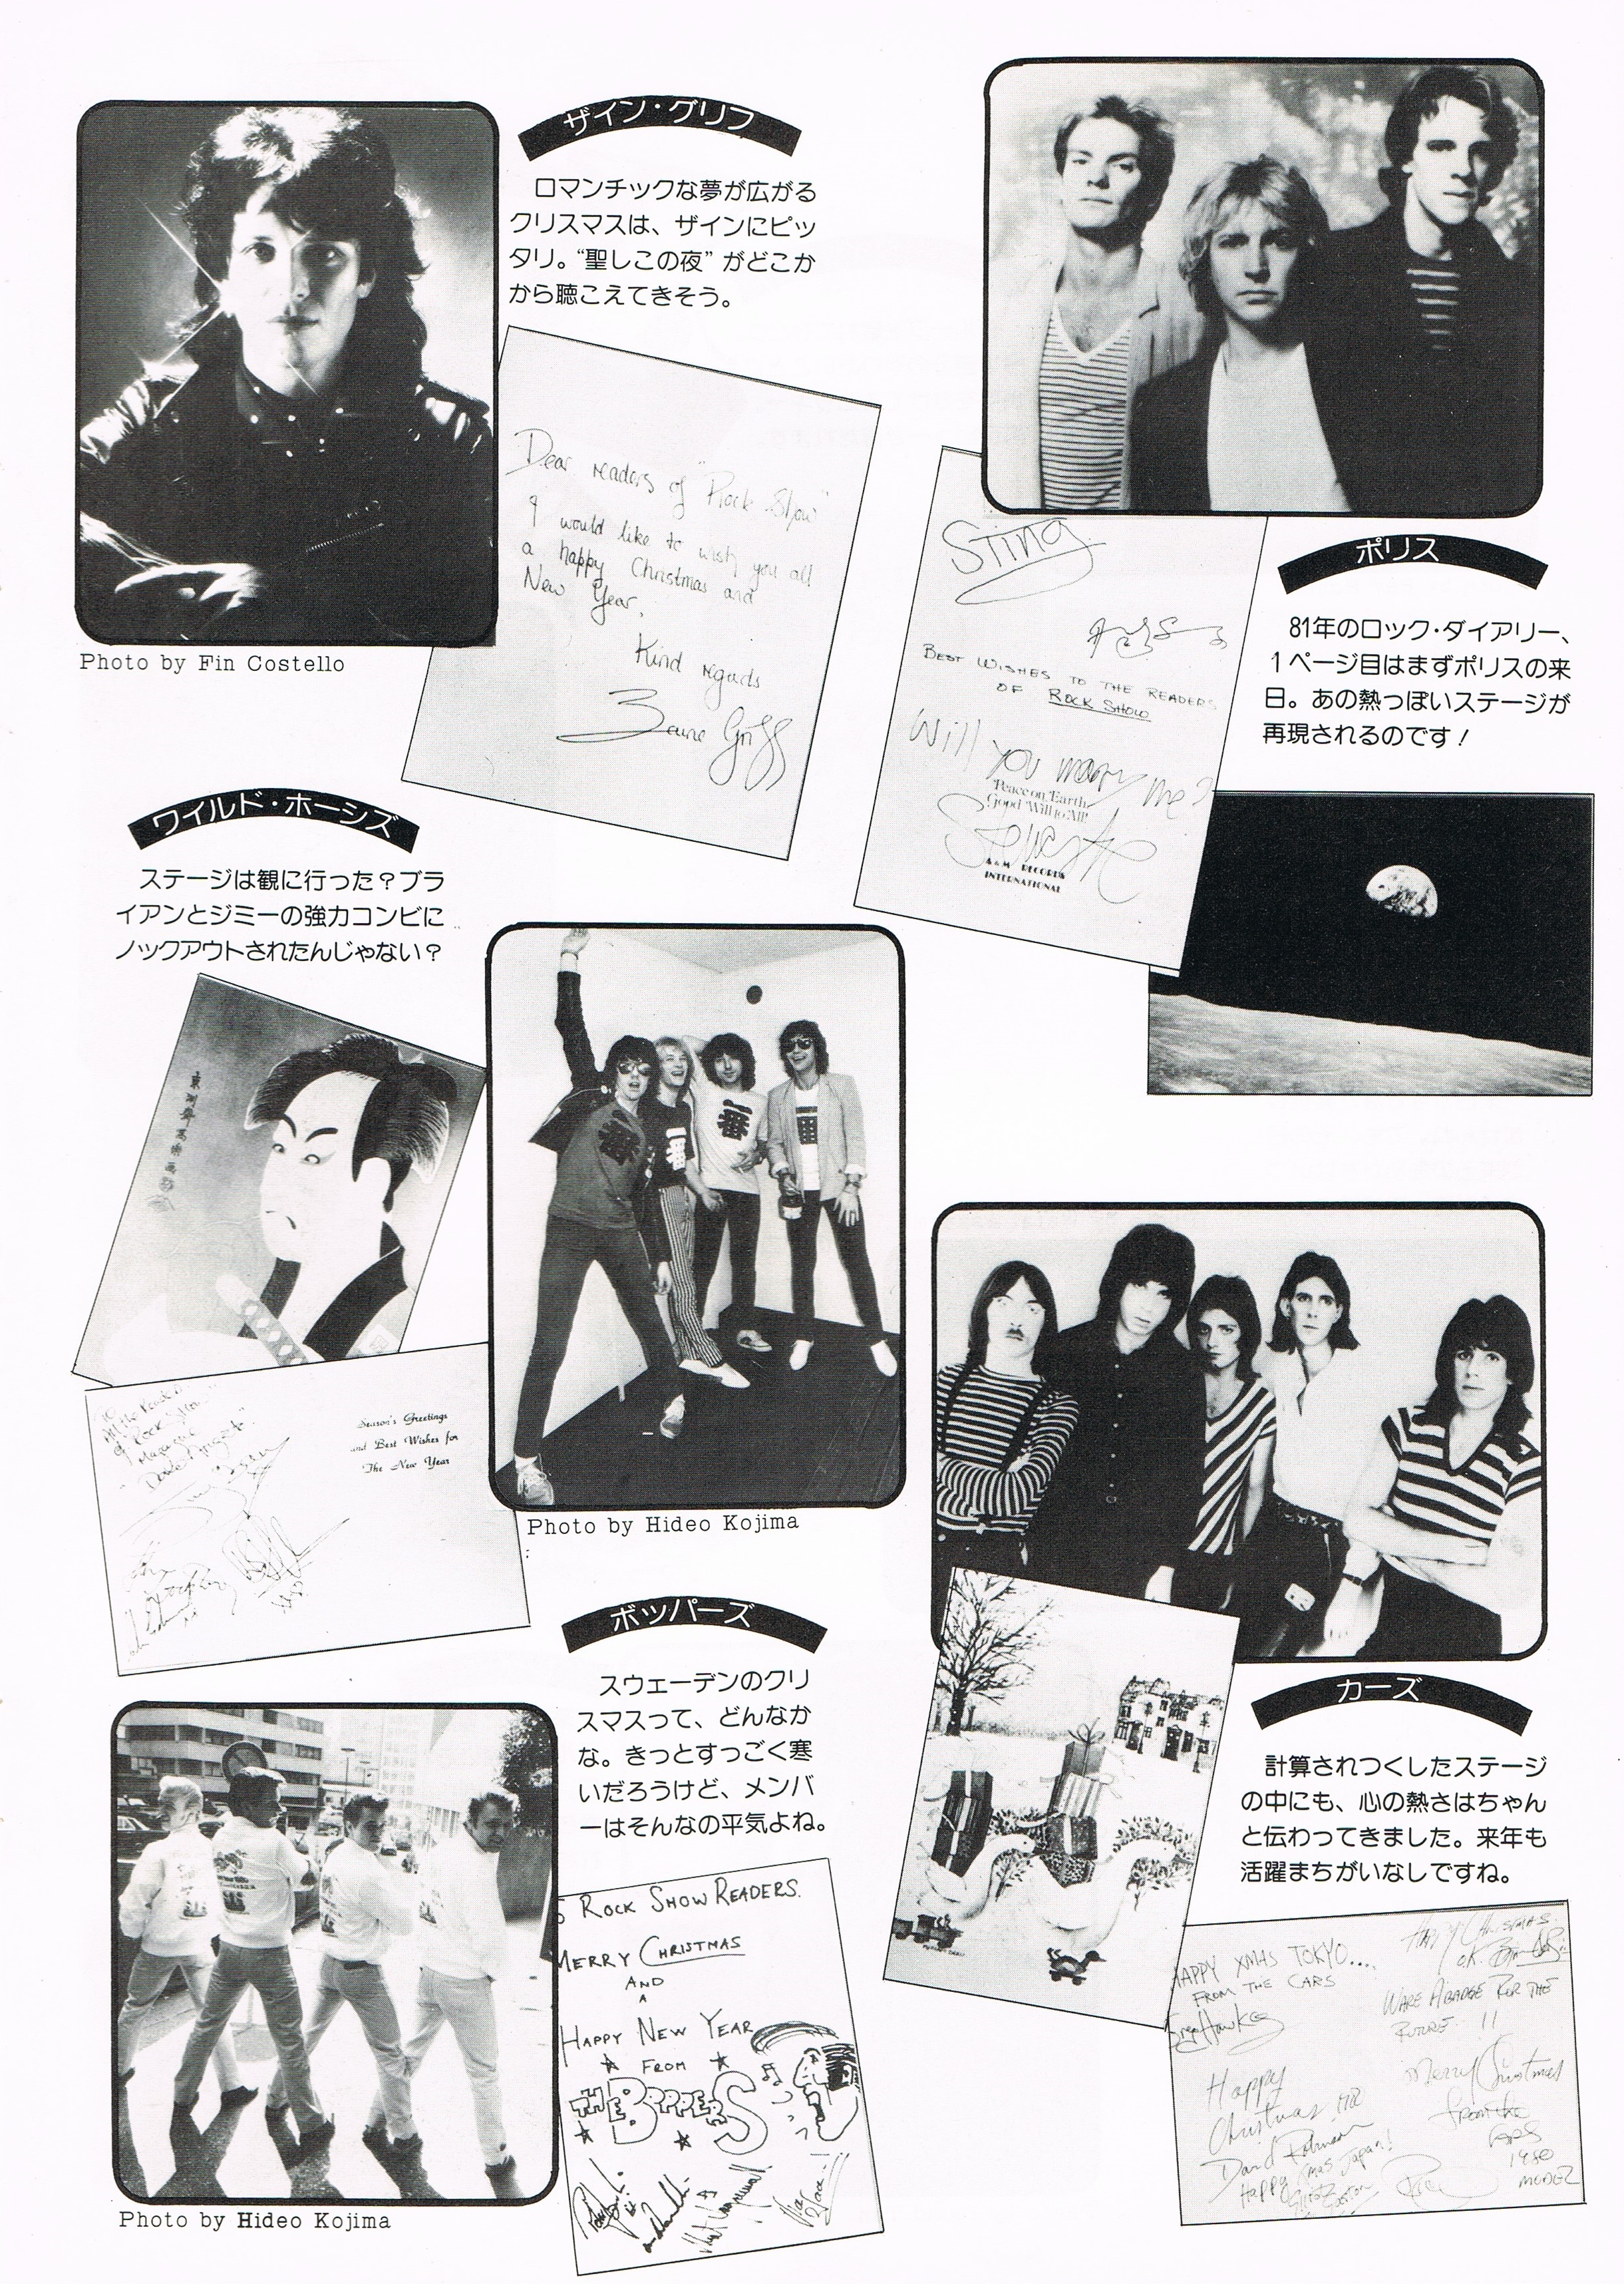 ザイン・グリフ
ロマンチックな夢が広がる
クリスマスは、ザインにピッ
タリ。“聖しこの夜”がどこか
から聴こえてきそう。
Photo by Fin Costello
Dear readers of "Rock Show"
I would like to wish you all
a happy Christmas and
New Year,
Kind regards
Zaine Griff
ポリス
81年のロック・ダイアリー、
1ページ目はまずポリスの来
日。あの熱っぽいステージが
再現されるのです!
Sting
BEST WISHES TO THE READERS
OF ROCK SHOW
Will you marry me?
Peace on Earth
Good Will to All!
A&M RECORDS
INTERNATIONAL
ワイルド・ホーシズ
ステージは観に行った?ブラ
イアンとジミーの強力コンビに
ノックアウトされたんじゃない?
一番
一番
一番
Photo by Hideo Kojima
of Rock Show
Magazine
Season's Greetings
and Best Wishes for
The New Year
ボッパーズ
スウェーデンのクリ
スマスって、どんなか
な。きっとすっごく寒
いだろうけど、メンバ
ーはそんなの平気よね。
Photo by Hideo Kojima
ROCK SHOW READERS.
MERRY CHRISTMAS
AND
A
HAPPY NEW YEAR
FROM
THE BOPPERS
カーズ
計算されつくしたステージ
の中にも、心の熱さはちゃん
と伝わってきました。来年も
活躍まちがいなしですね。
HAPPY XMAS TOKYO....
FROM THE CARS
Greg Hawkes
Happy
Christmas
David Robinson
Happy Xmas Japan!
Elliot Easton
HAPPY CHRISTMAS
WARE A BADGE FOR THE
FUTURE !!
Merry Christmas
from the
CARS
1980
MODEL